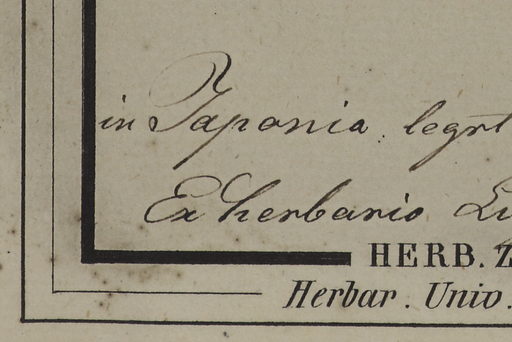 in Japonia legit
Ex herbario
HERB. Z
Herbar. Univ.